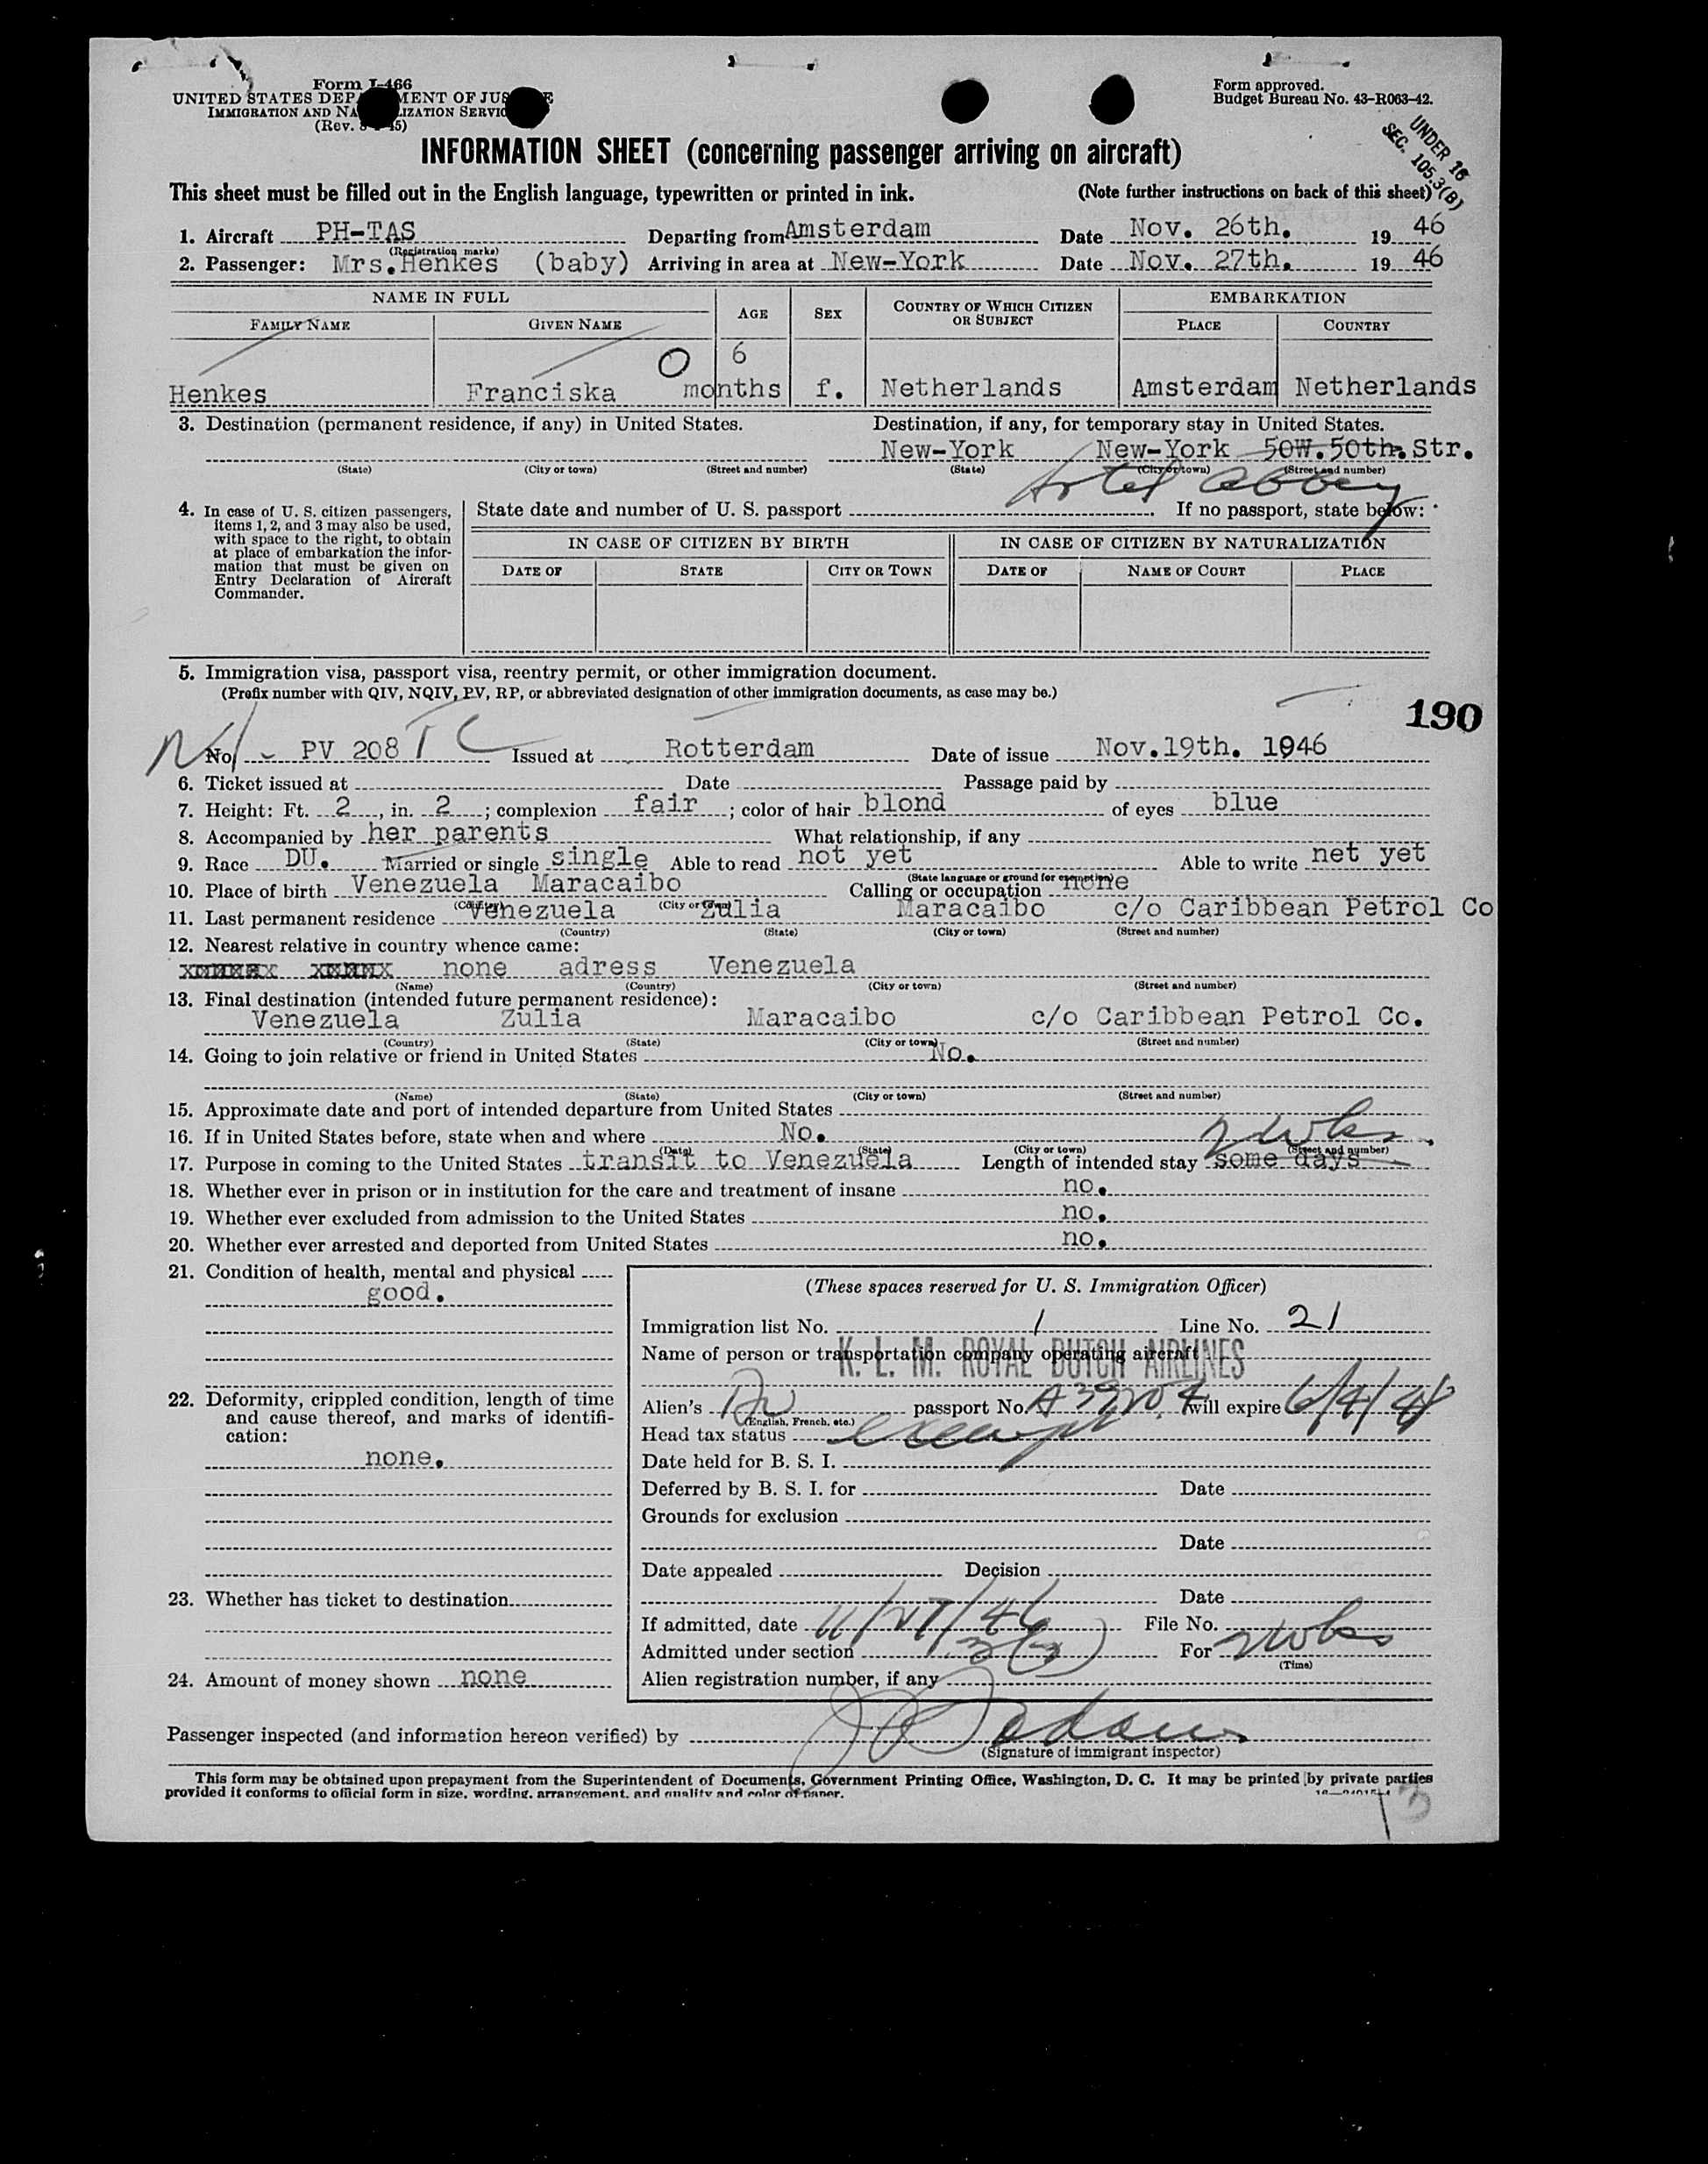 Form I-466
UNITED STATES DEPARTMENT OF JUSTICE
IMMIGRATION AND NATURALIZATION SERVICE
(Rev.
Form approved.
Budget Bureau No. 43-R063-42.
UNDER 16
SEC. 105.3(B)
INFORMATION SHEET (concerning passenger arriving on aircraft)
This sheet must be filled out in the English language, typewritten or printed in ink. (Note further instructions on back of this sheet)
1. Aircraft PH-TAS Departing from Amsterdam Date Nov. 26th. 19 46
(Registration marks)
2. Passenger: Mrs.Henkes (baby) Arriving in area at New-York Date Nov. 27th. 19 46
NAME IN FULL AGE SEX COUNTRY OF WHICH CITIZEN OR SUBJECT EMBARKATION
FAMILY NAME GIVEN NAME PLACE COUNTRY
0 6
Henkes Franciska months f. Netherlands Amsterdam Netherlands
3. Destination (permanent residence, if any) in United States. Destination, if any, for temporary stay in United States.
New-York New-York 50W.50th.Str.
(State) (City or town) (Street and number) (State) (City or town) (Street and number)
Hotel Abbey
4. In case of U. S. citizen passengers, items 1, 2, and 3 may also be used, with space to the right, to obtain at place of embarkation the information that must be given on Entry Declaration of Aircraft Commander.
State date and number of U. S. passport . If no passport, state below:
IN CASE OF CITIZEN BY BIRTH IN CASE OF CITIZEN BY NATURALIZATION
DATE OF STATE CITY OR TOWN DATE OF NAME OF COURT PLACE
5. Immigration visa, passport visa, reentry permit, or other immigration document.
(Prefix number with QIV, NQIV, PV, RP, or abbreviated designation of other immigration documents, as case may be.)
190
No. PV 208 TC Issued at Rotterdam Date of issue Nov.19th. 1946
6. Ticket issued at Date Passage paid by
7. Height: Ft. 2, in. 2; complexion fair; color of hair blond of eyes blue
8. Accompanied by her parents What relationship, if any
9. Race DU. Married or single single Able to read not yet Able to write net yet
(State language or ground for exemption)
10. Place of birth Venezuela Maracaibo Calling or occupation none
(Country) (City or town)
11. Last permanent residence Venezuela Zulia Maracaibo c/o Caribbean Petrol Co
(Country) (State) (City or town) (Street and number)
12. Nearest relative in country whence came:
none adress Venezuela
(Name) (Country) (City or town) (Street and number)
13. Final destination (intended future permanent residence):
Venezuela Zulia Maracaibo c/o Caribbean Petrol Co.
(Country) (State) (City or town) (Street and number)
14. Going to join relative or friend in United States No.
(Name) (State) (City or town) (Street and number)
15. Approximate date and port of intended departure from United States
16. If in United States before, state when and where No.
(Date) (State) (City or town) (Street and number)
2 wks
17. Purpose in coming to the United States transit to Venezuela Length of intended stay some days
18. Whether ever in prison or in institution for the care and treatment of insane no.
19. Whether ever excluded from admission to the United States no.
20. Whether ever arrested and deported from United States no.
21. Condition of health, mental and physical
good.
22. Deformity, crippled condition, length of time and cause thereof, and marks of identification:
none.
23. Whether has ticket to destination
24. Amount of money shown none
(These spaces reserved for U. S. Immigration Officer)
Immigration list No. 1 Line No. 21
Name of person or transportation company operating aircraft
K. L. M. ROYAL DUTCH AIRLINES
Alien's Du passport No. A39204 will expire 6/4/48
(English, French, etc.)
Head tax status exempt
Date held for B. S. I.
Deferred by B. S. I. for Date
Grounds for exclusion
Date
Date appealed Decision
Date
If admitted, date 11/27/46 File No.
Admitted under section 3(3) For 2 wks
(Time)
Alien registration number, if any
Passenger inspected (and information hereon verified) by
(Signature of immigrant inspector)
This form may be obtained upon prepayment from the Superintendent of Documents, Government Printing Office, Washington, D. C. It may be printed by private parties
provided it conforms to official form in size, wording, arrangement, and quality and color of paper.